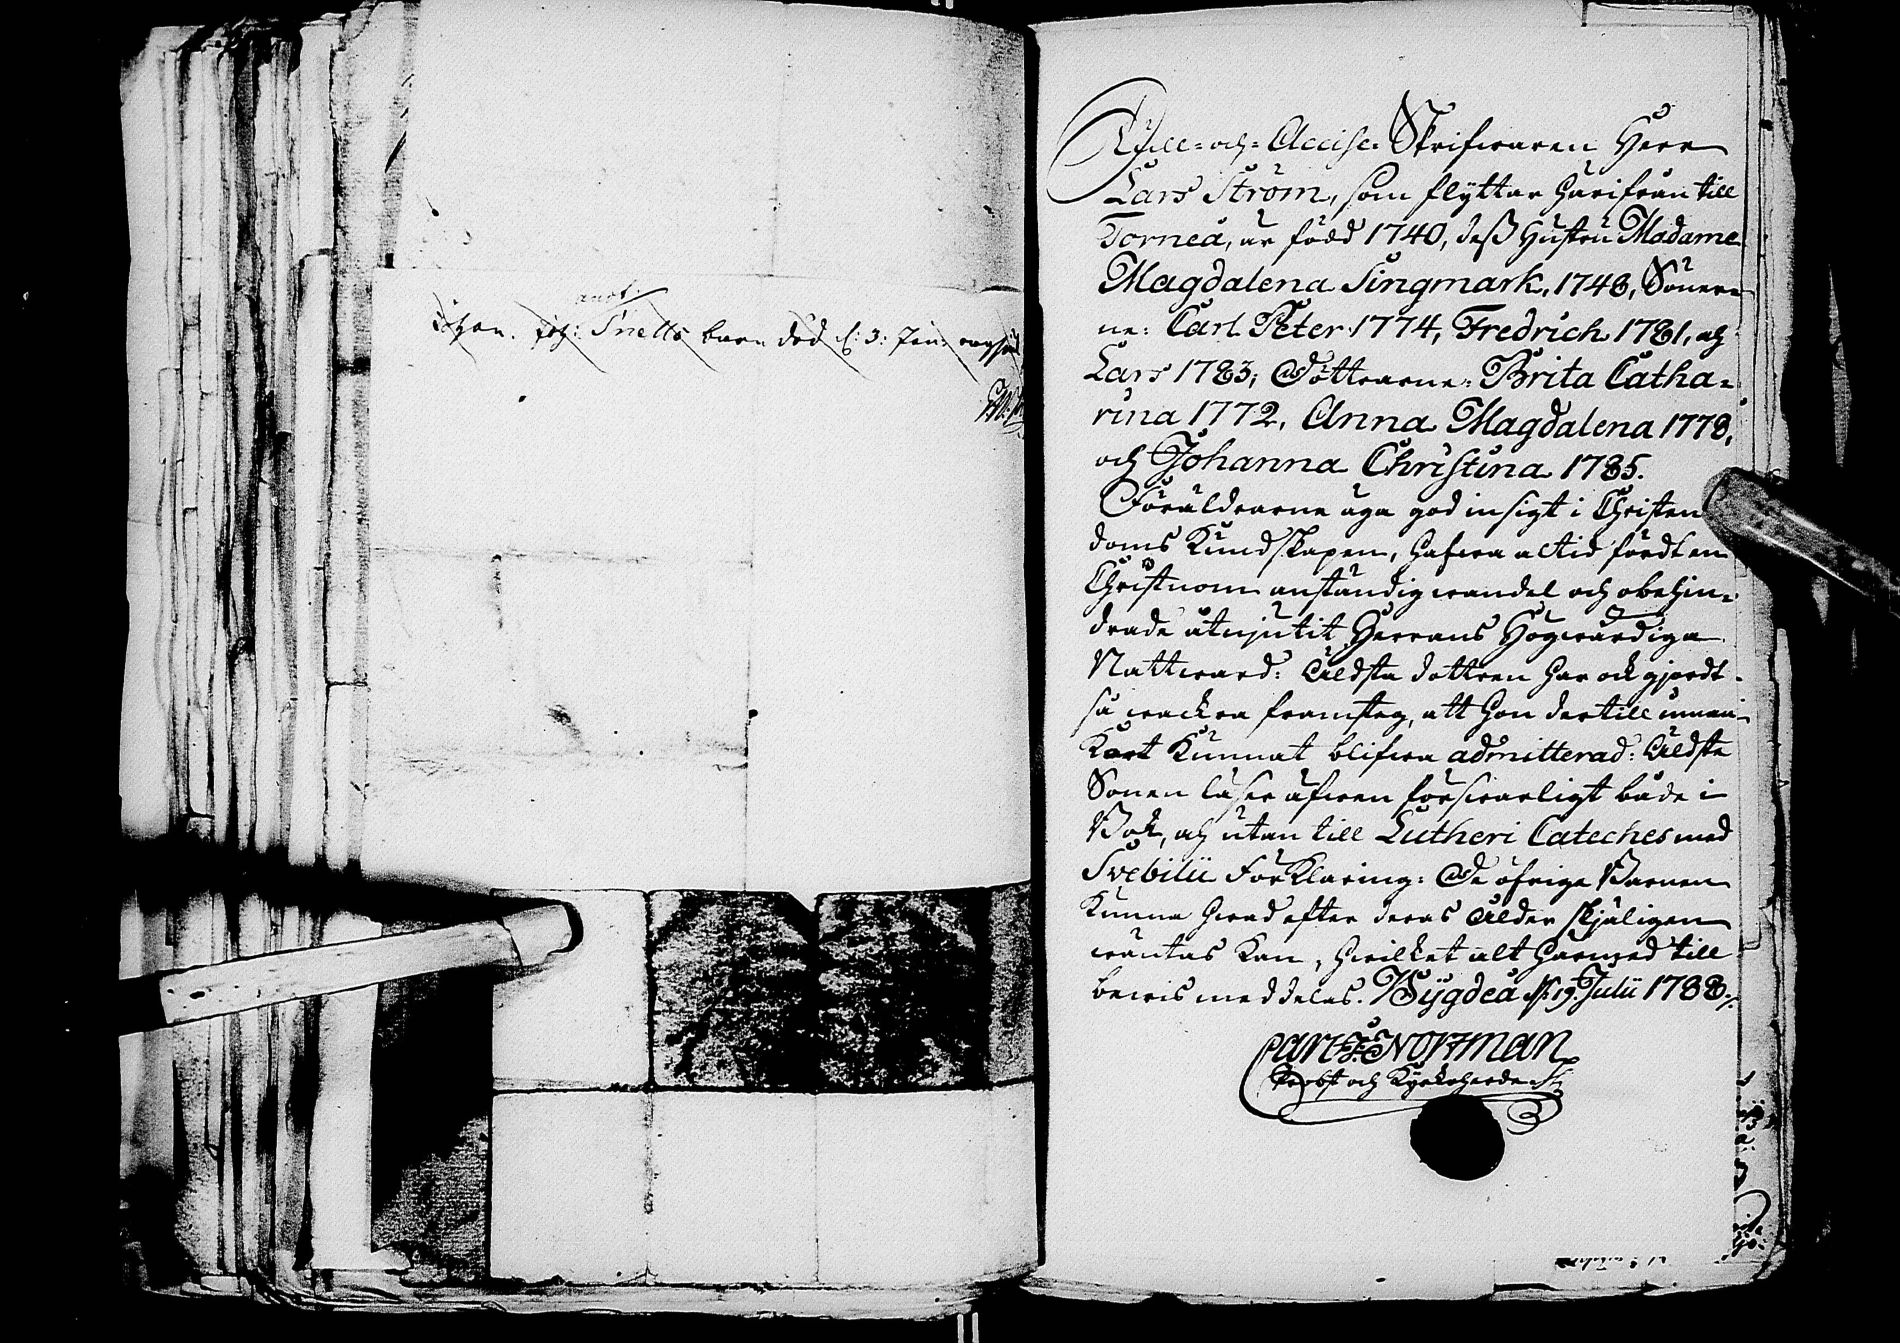 Snells barn död d: 3: Jan:
Tull- och Accise-Skrifwaren Herr
Lars Ström, som flyttar härifrån till
Torneå, är född 1740, desz Hustru Madame
Magdalena Singmark, 1748, Söner-
ne: Carl Peter 1774, Fredrich 1781, och
Lars 1783; Döttrarne: Brita Catha-
rina 1772, Anna Magdalena 1778,
och Johanna Christina 1785.
Föräldrarne äga god insigt i Christen
doms Kundskapen, hafwa altid fördt en
Christnom anständig wandel och obehin-
drade åtnjutit Herrans Högwärdiga
Nattward: Äldsta dottren har ock gjordt
så wackra framsteg, att hon dertill innan
Kort Kunnat blifwa admitterad: Äldste
Sonen läser äfwen förswarligt både i
Bok, och utan till Lutheri Cateches med
Svebilii Förklaring: De öfrige Barnen
Kunna hwad efter deras Ålder skjäligen
wäntas kan, hwilket alt härmed till
bewis meddelas. Bygdeå d. 19. Julii 1788.
Carl Norman
Probst och Kyrkoherde